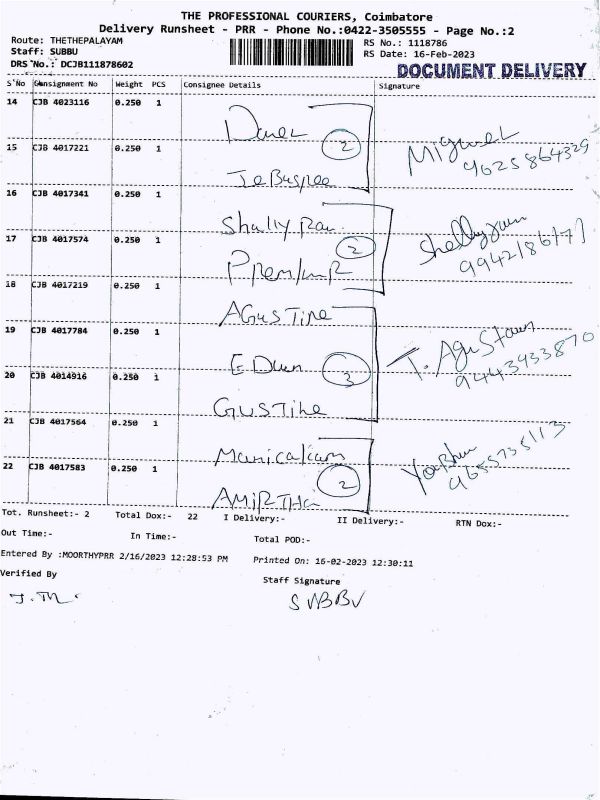 THE PROFESSIONAL COURIERS, Coimbatore
Delivery Runsheet - PRR - Phone No.:0422-3505555 - Page No.:2
Route: THETHEPALAYAM
RS No.: 1118786
Staff: SUBBU
RS Date: 16-Feb-2023
DRS No.: DCJB111878602
DOCUMENT DELIVERY
S'No Consignment No Weight PCS Consignee Details Signature
14 CJB 4023116 0.250 1
15 CJB 4017221 0.250 1 Miguel
9625864329
16 CJB 4017341 0.250 1
2
17 CJB 4017574 0.250 1 Premium 2
18 CJB 4017219 0.250 1 AGUSTINE
19 CJB 4017784 0.250 1
20 CJB 4014916 0.250 1 3
9443933870
GUSTINE
21 CJB 4017564 0.250 1
22 CJB 4017583 0.250 1 2
9655735113
AMIRTHA
Tot. Runsheet:- 2 Total Dox:- 22 I Delivery:- II Delivery:- RTN Dox:-
Out Time:- In Time:- Total POD:-
Entered By :MOORTHYPRR 2/16/2023 12:28:53 PM Printed On: 16-02-2023 12:30:11
Verified By Staff Signature
SUBBU